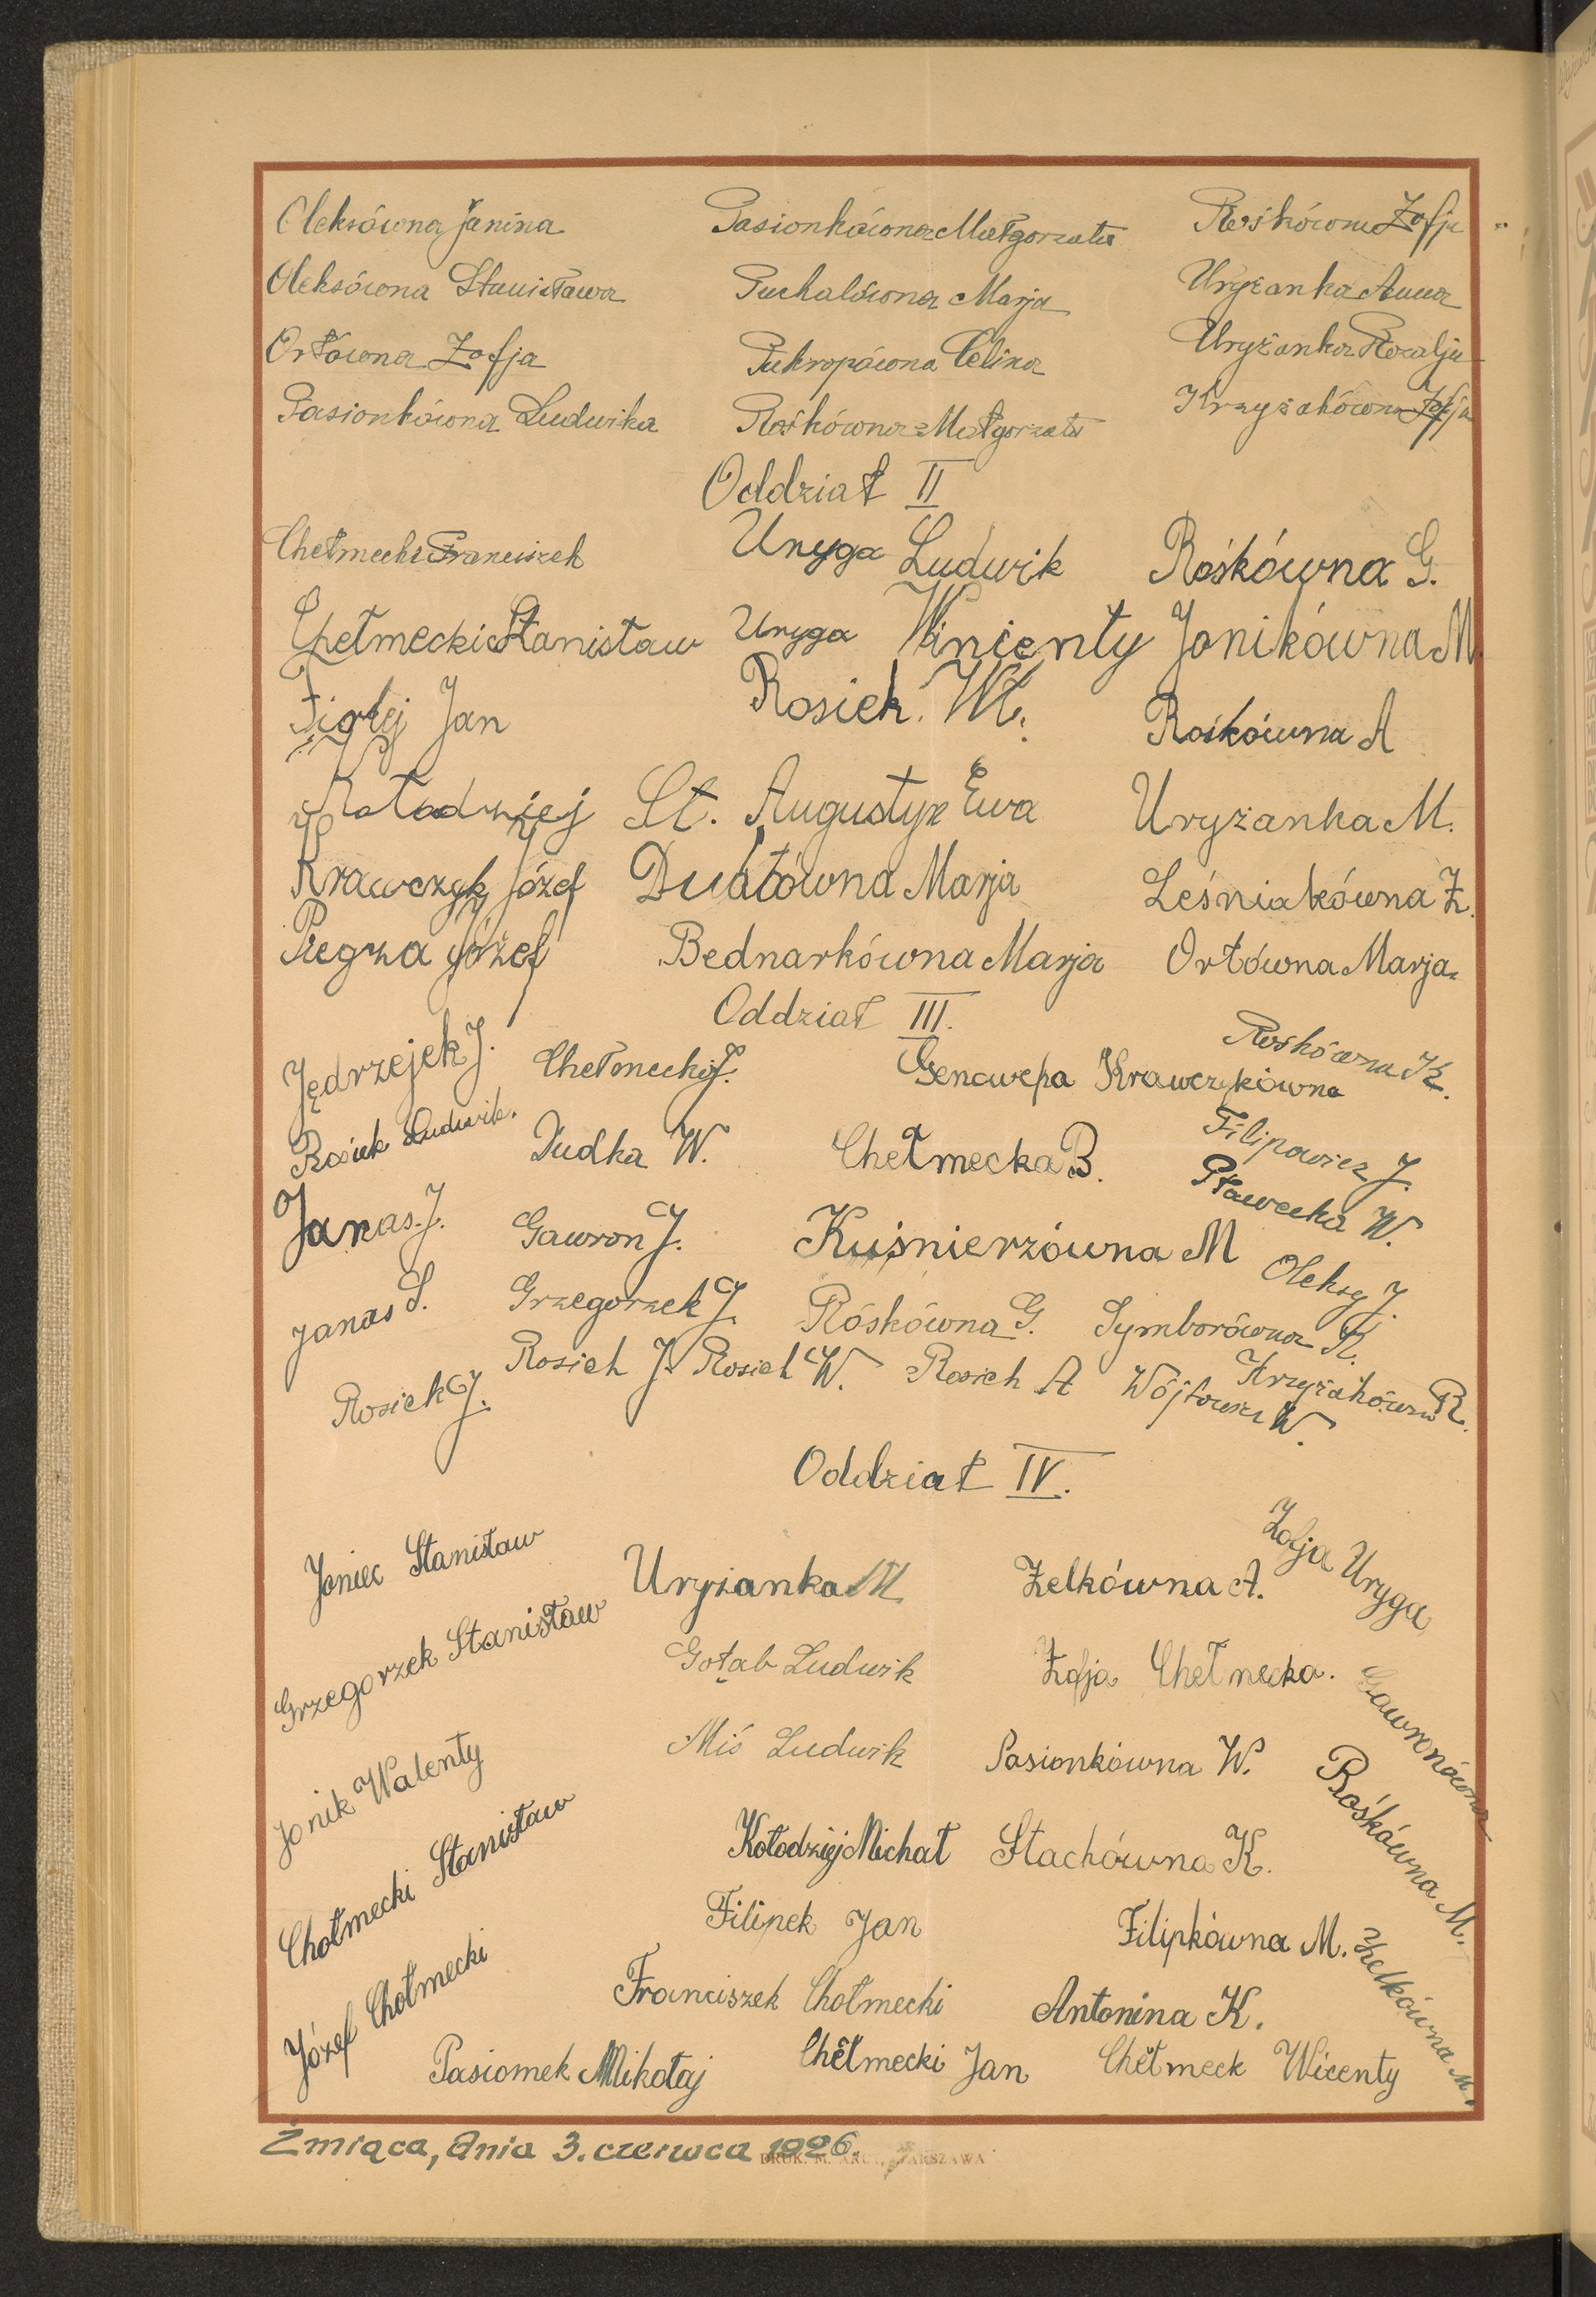 Oleksówna Janina Pasionkówna Małgorzata Rośkówna Zofja
Oleksówna Stanisława Puchalówna Marja Uryżanka Anna
Ortówna Zofja Pukropówna Celina Uryżanka Rozalja
Pasionkówna Ludwika Rośkówna Małgorzata Krzyżakówna Zofja
Oddział II
Chełmecki Franciszek Uryga Ludwik Rośkówna G.
Chełmecki Stanisław Uryga Winienty Jonikówna M.
Jan Rosiek Wł. Rośkówna A
Kołodziej St. Augustyn Ewa Uryżanka M.
Krawczyk Józef Dudłówna Marja Leśniakówna Z.
Piegza Józef Bednarkówna Marja Ortówna Marja
Oddział III.
Jędrzejek J. Chełmecki J. Genowefa Krawczykówna Rośkówna K.
Rosiek Ludwik. Dudka W. Chełmecka B. Filipowicz J.
Janas. J. Gawron J. Kuśnierzówna M Pławecka W.
Janas S. Grzegorzek J. Róśkówna G. Symborówna R. Oleksy J.
Rosiek J. Rosiek J. Rosiek W. Rosiek A Wójtowicz W. Krzyżakówna R.
Oddział IV.
Joniec Stanisław Uryżanka M Zelkówna A. Zofja Uryga
Grzegorzek Stanisław Gołąb Ludwik Zofja Chełmecka. Gawronówna
Jonik Walenty Miś Ludwik Pasionkówna W. Rośkówna M.
Chołmecki Stanisław Kołodziej Michał Stachówna K.
Filipek Jan Filipkówna M. Zelkówna M.
Józef Chołmecki Franciszek Chołmecki Antonina K.
Pasiomek Mikołaj Chełmecki Jan Chełmeck Wicenty
Żmiąca, dnia 3. czerwca 1926.
DRUK. M. ARCT, WARSZAWA